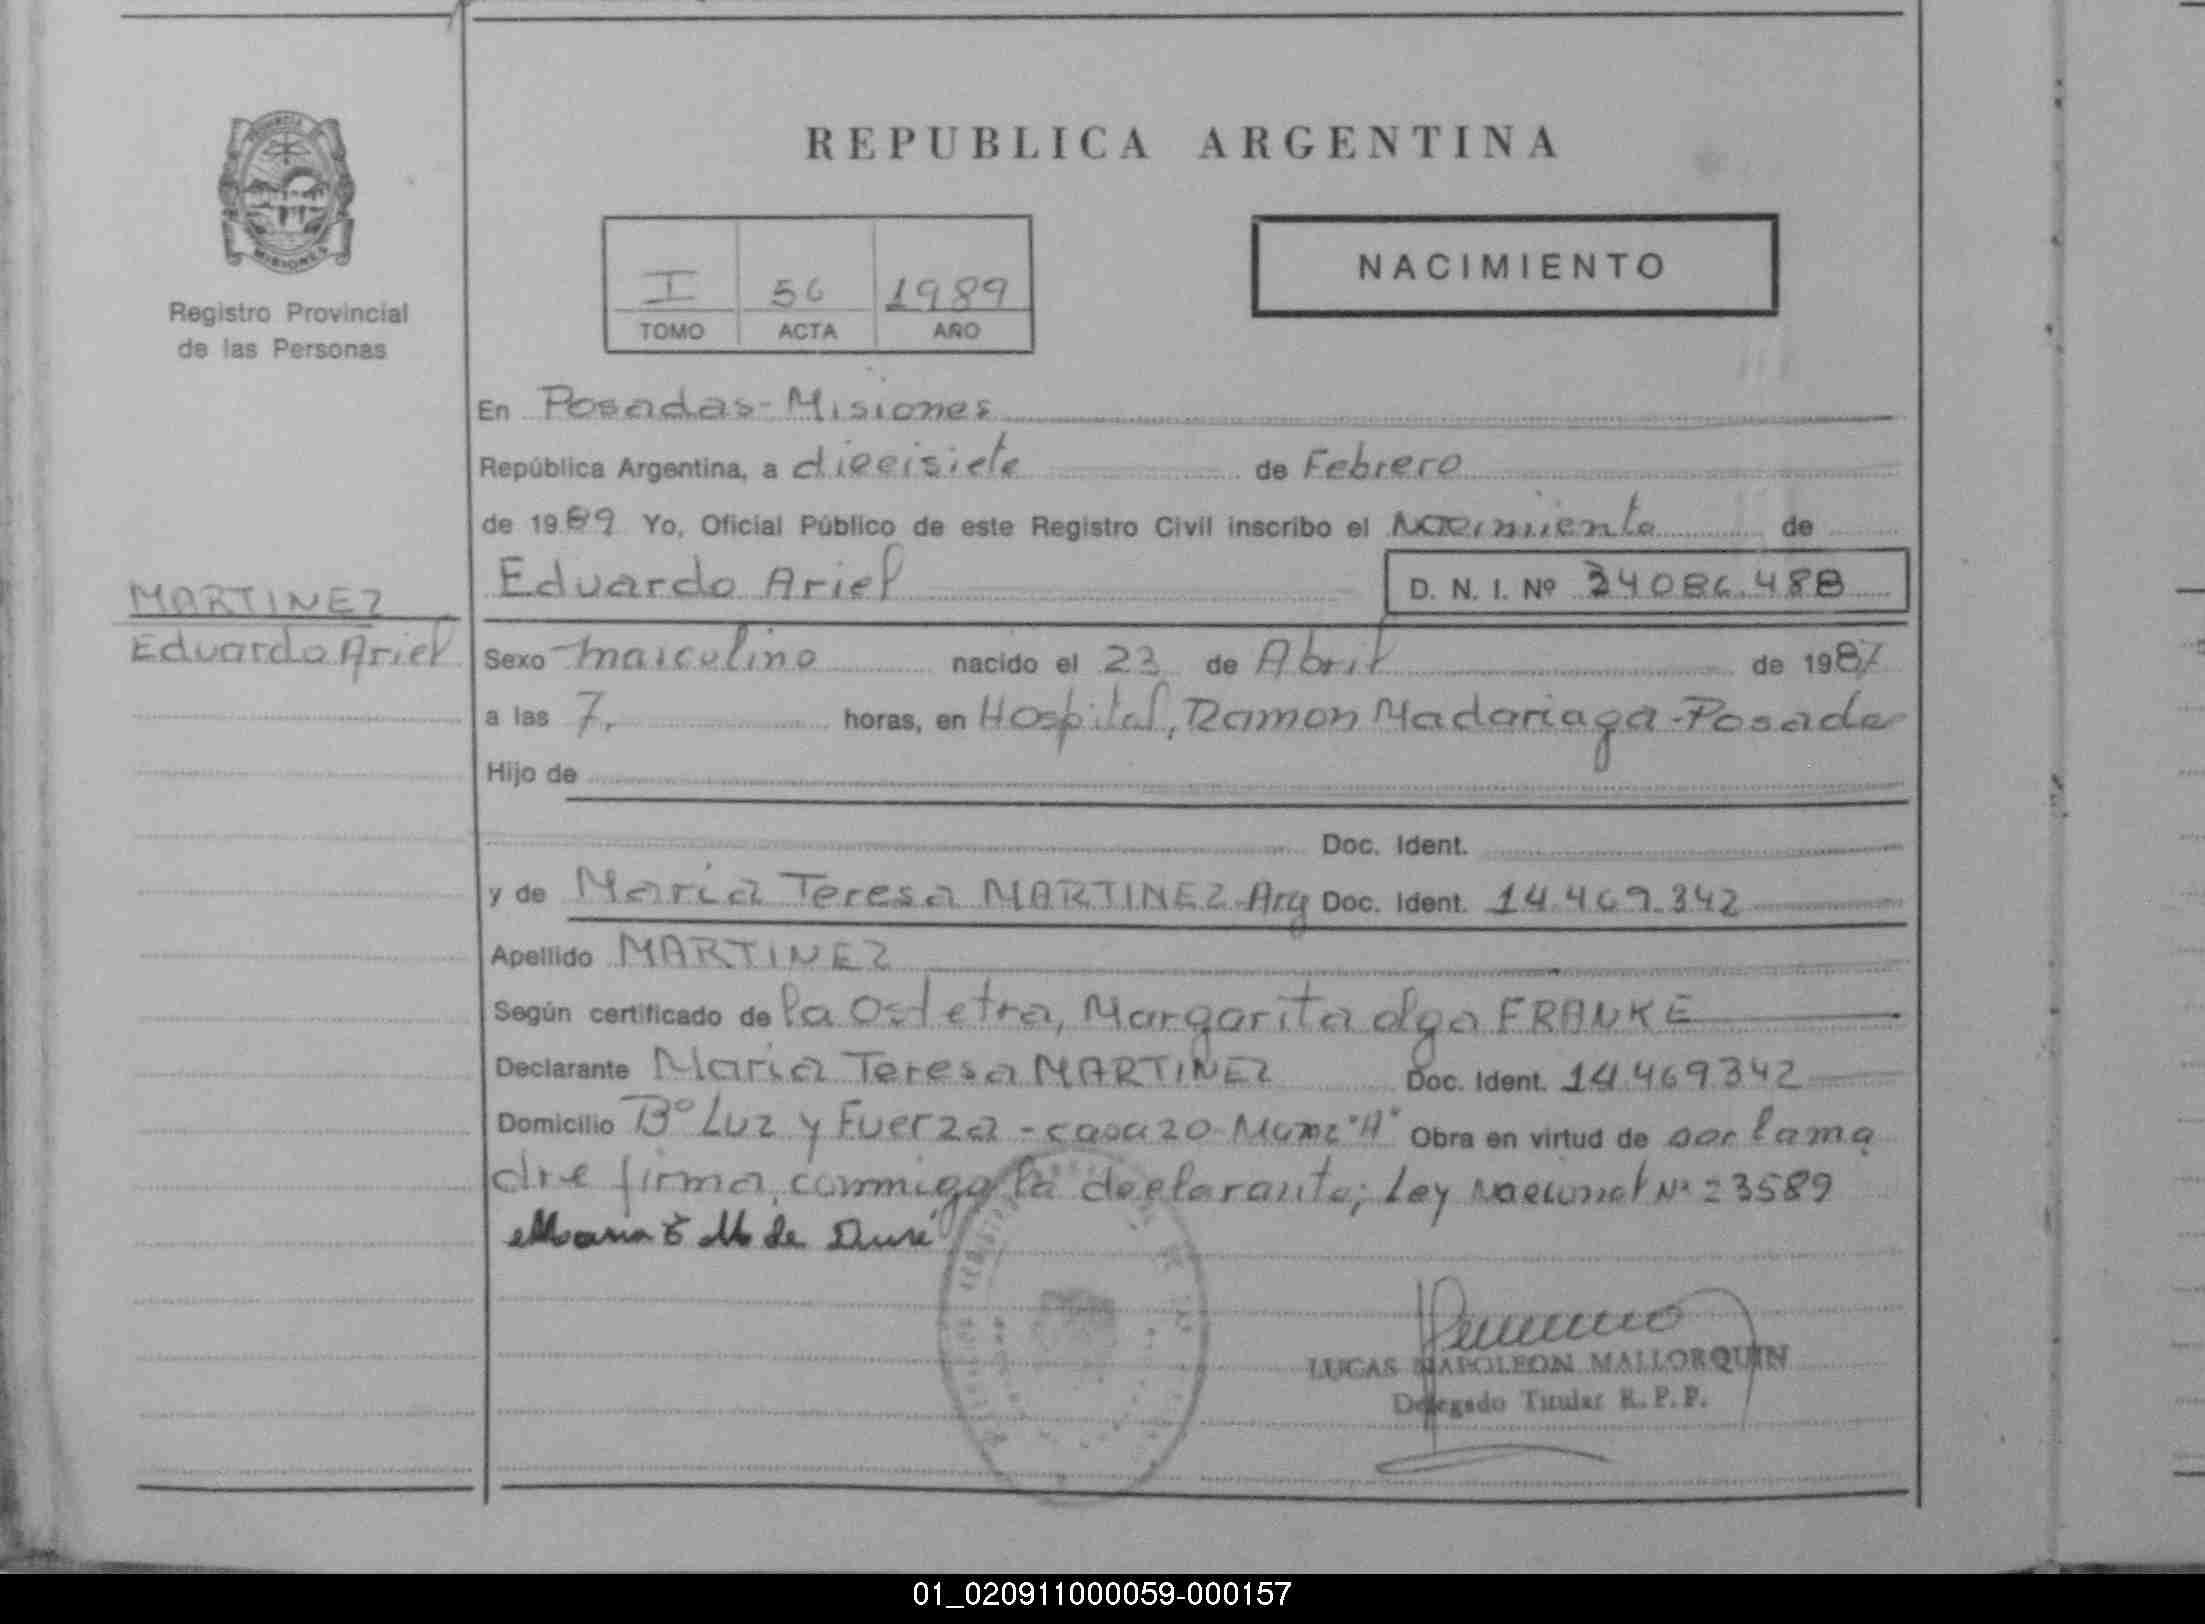 REPUBLICA ARGENTINA
PROVINCIA DE
MISIONES
Registro Provincial
de las Personas
I 56 1989
TOMO ACTA AÑO
NACIMIENTO
En Posadas - Misiones
República Argentina, a diecisiete de Febrero
de 1989 Yo, Oficial Público de este Registro Civil inscribo el nacimiento de
Eduardo Ariel D. N. I. Nº 34086.488
MARTINEZ
Eduardo Ariel
Sexo masculino nacido el 23 de Abril de 1987
a las 7, horas, en Hospital, Ramon Madariaga - Posadas
Hijo de
Doc. Ident.
y de Maria Teresa MARTINEZ - Arg Doc. Ident. 14.469.342
Apellido MARTINEZ
Según certificado de la Ostetra, Margarita olga FRANKE
Declarante Maria Teresa MARTINEZ Doc. Ident. 14469342
Domicilio Bº Luz y Fuerza - casa 20 - Manz "A" Obra en virtud de ser la ma
dre firma, conmigo la declarante; Ley Nacional Nº 23589
LUCAS NAPOLEON MALLORQUIN
Delegado Titular R. P. P.
01_020911000059-000157